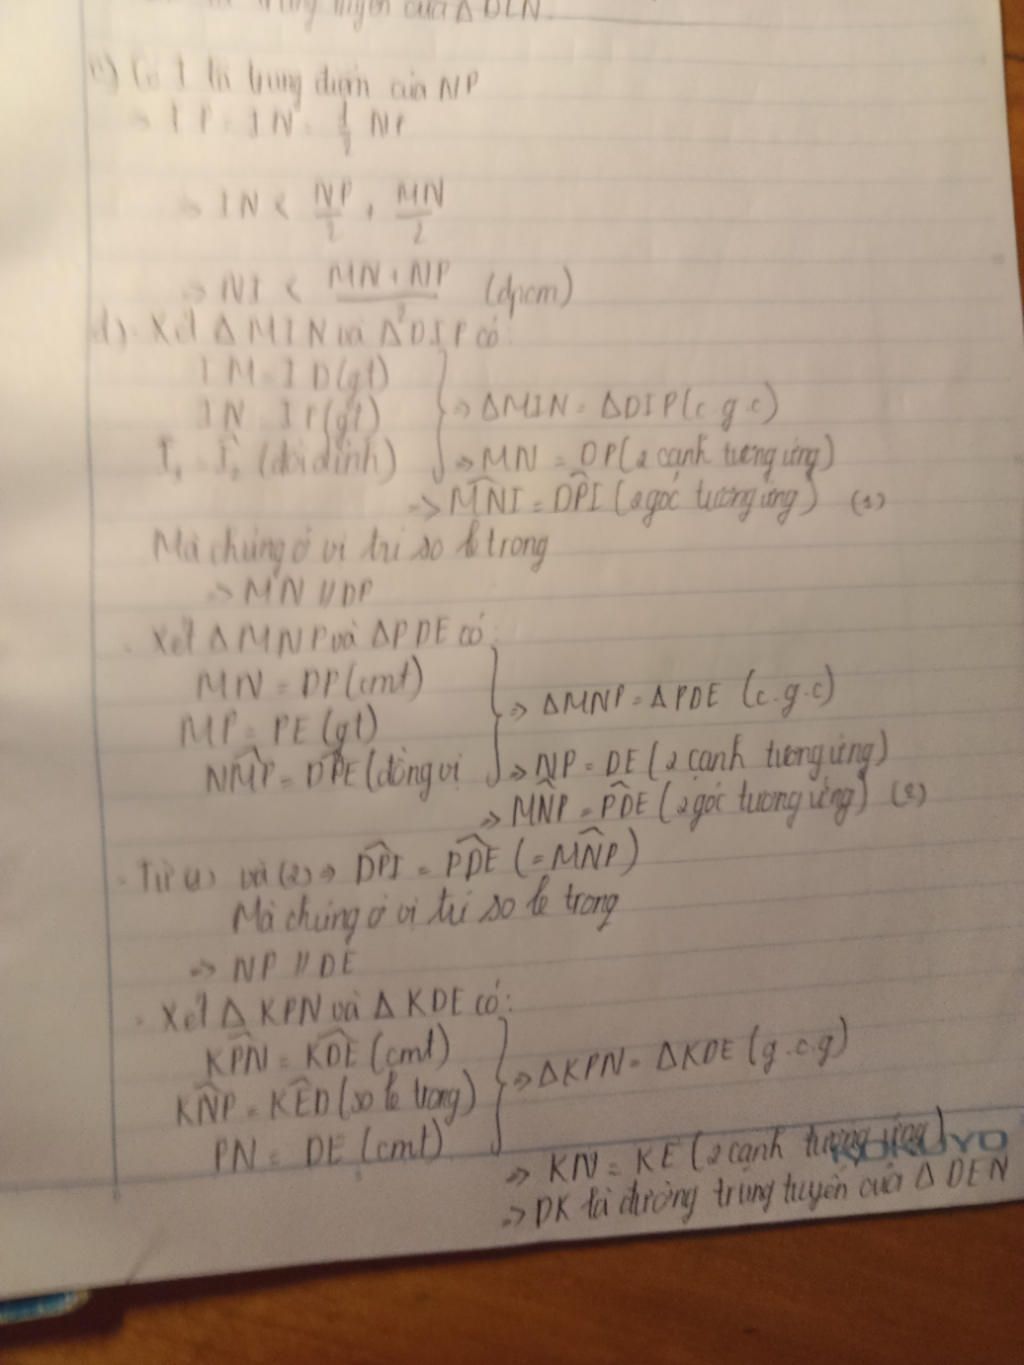 trung tuyến của Δ DEN.
c) Có I là trung điểm của NP
⇒ IP = IN = 1/2 NP
⇒ IN < NP/2 + MN/2
⇒ NI < (MN + NP)/2 (đpcm)
d) Xét Δ MIN và Δ DIP có:
IM = ID (gt)
IN = IP (gt) ⇒ ΔMIN = ΔDIP (c.g.c)
(đối đỉnh) ⇒ MN = DP (2 cạnh tương ứng)
⇒ MNI = DPI (2 góc tương ứng) (1)
Mà chúng ở vị trí so le trong
⇒ MN // DP
. Xét Δ MNP và ΔPDE có:
MN = DP (cmt)
MP = PE (gt) ⇒ ΔMNP = ΔPDE (c.g.c)
NMP = DPE (đồng vị ⇒ NP = DE (2 cạnh tương ứng)
⇒ MNP = PDE (2 góc tương ứng) (2)
. Từ (1) và (2) ⇒ DPI = PDE (= MNP)
Mà chúng ở vị trí so le trong
⇒ NP // DE
. Xét Δ KPN và Δ KDE có:
KPN = KDE (cmt)
KNP = KED (so le trong) ⇒ ΔKPN = ΔKDE (g.c.g)
PN = DE (cmt)
⇒ KN = KE (2 cạnh tương ứng)
KOKUYO
⇒ DK là đường trung tuyến của Δ DEN